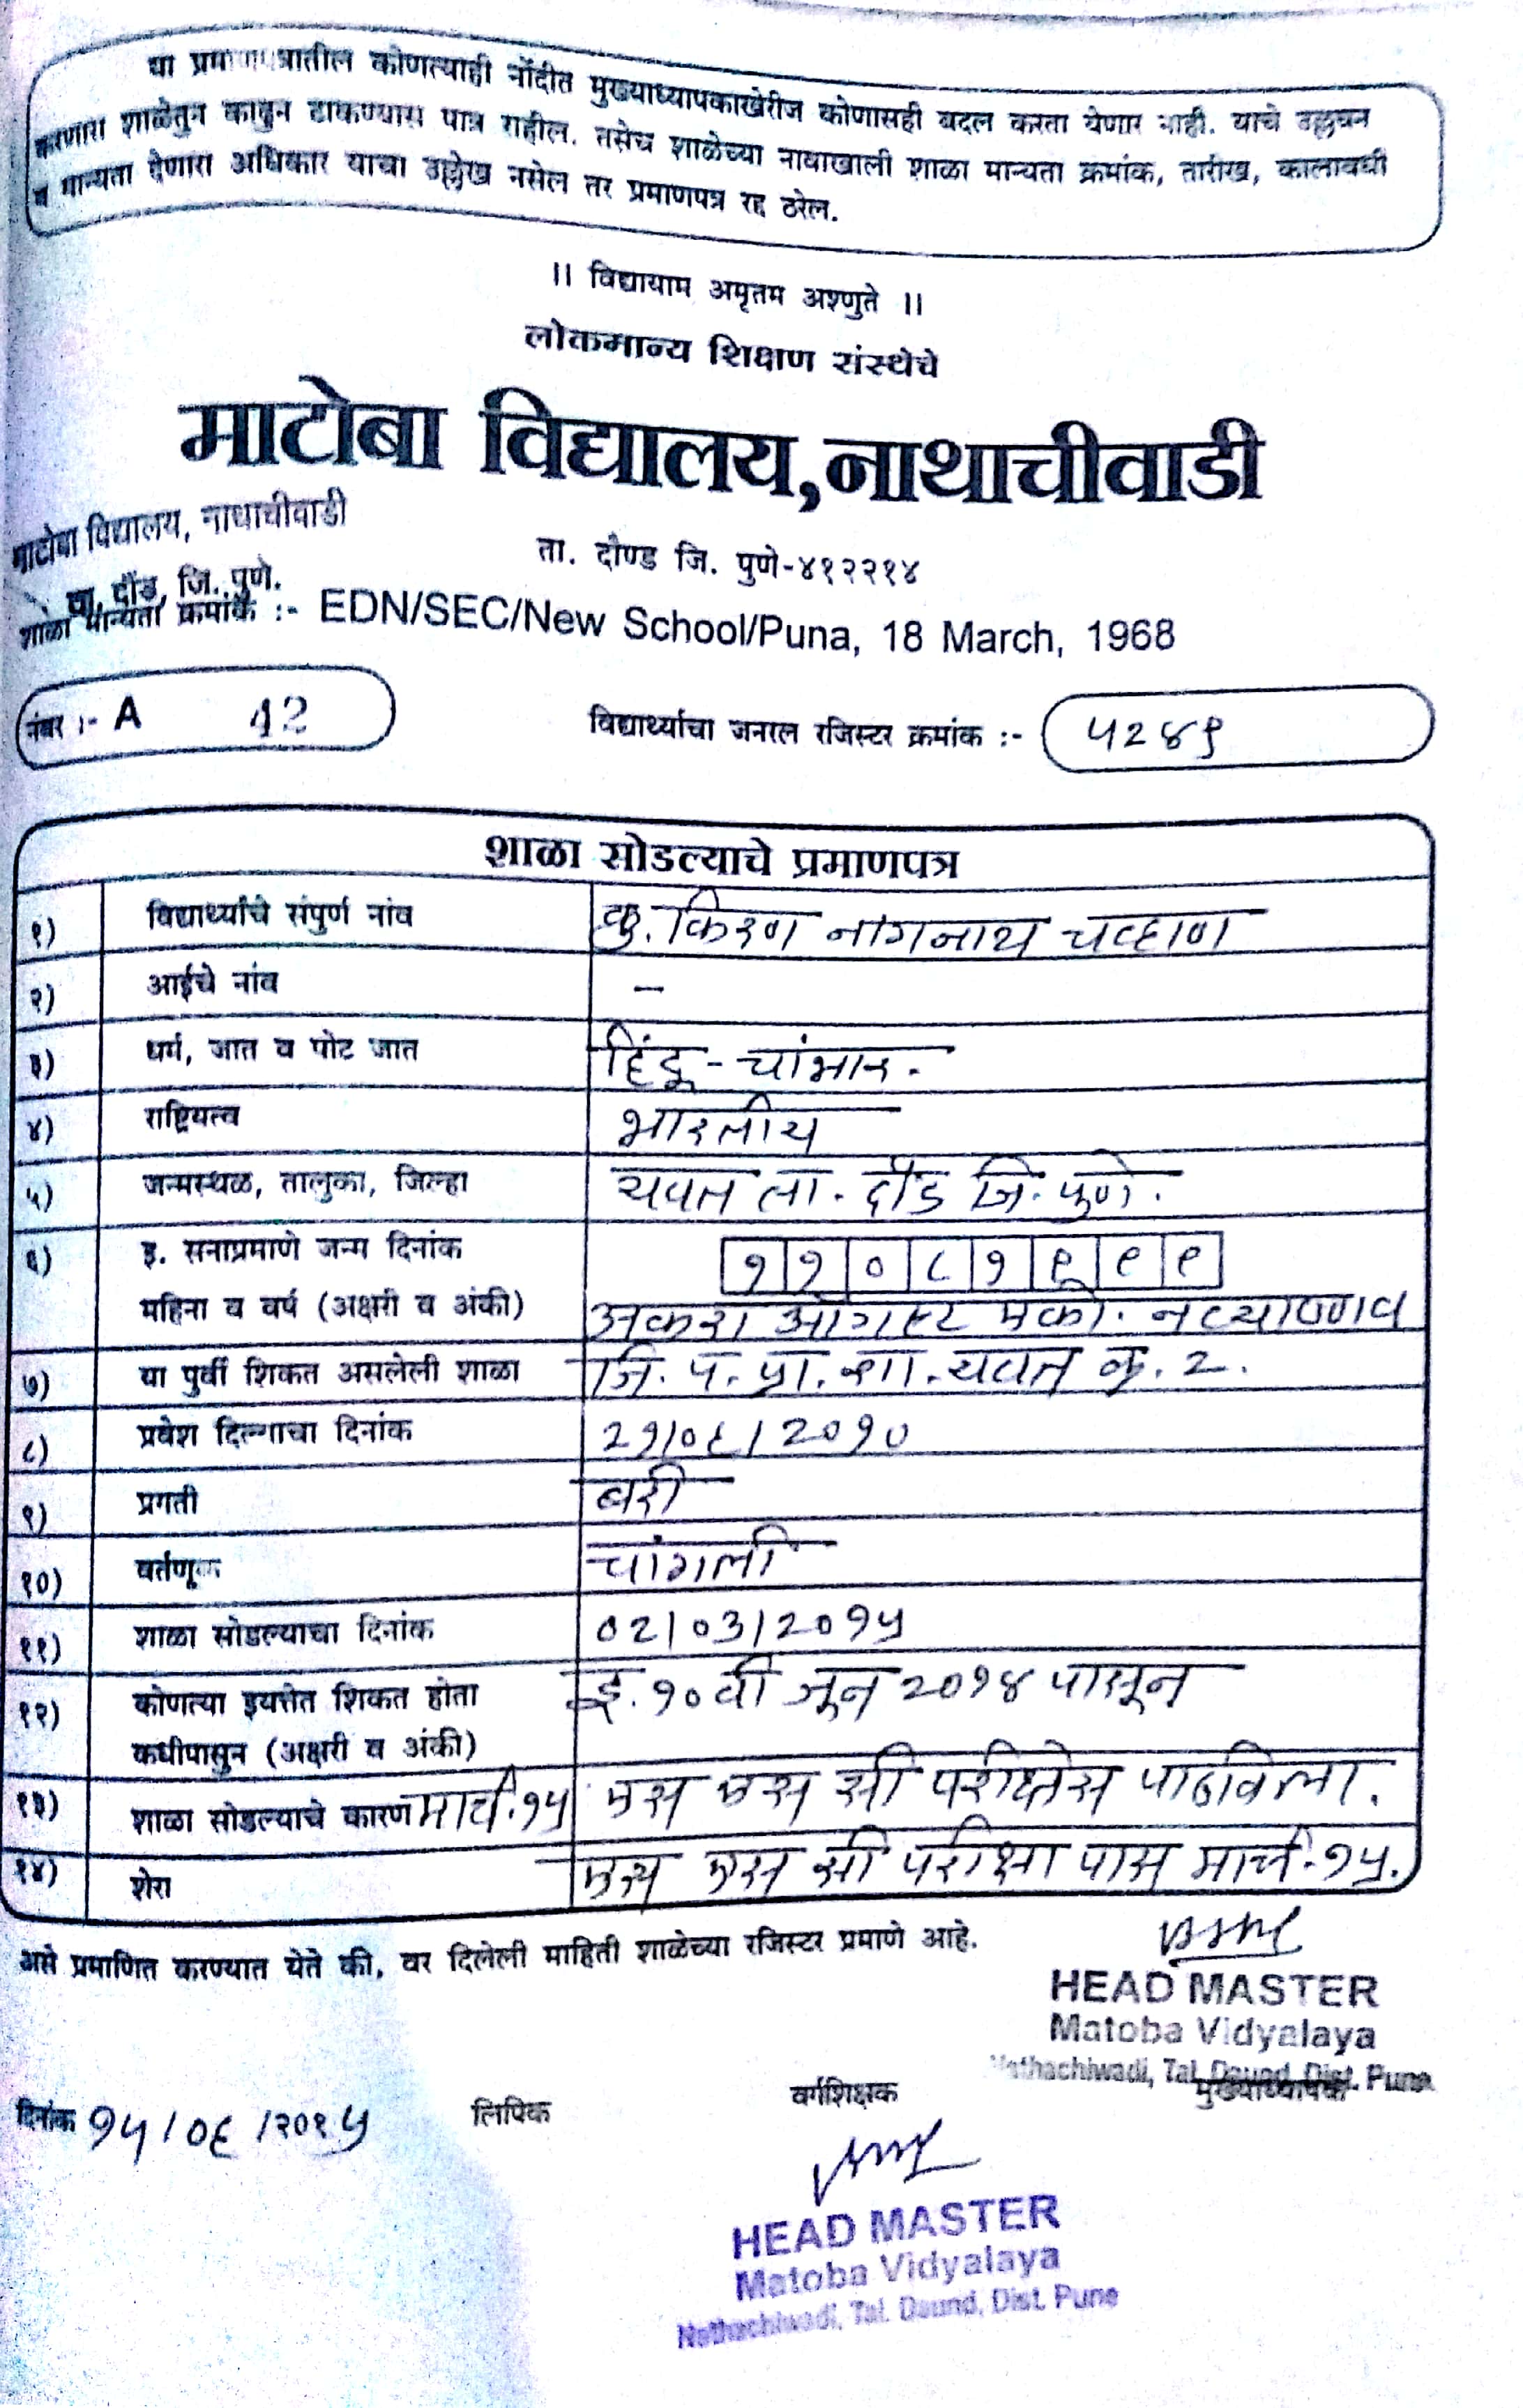 या प्रमाणपत्रातील कोणत्याही नोंदीत मुख्याध्यापकाखेरीज कोणासही बदल करता येणार नाही. याचे उल्लघन
करणारा शाळेतुन काढुन टाकण्यास पात्र राहील. तसेच शाळेच्या नावाखाली शाळा मान्यता क्रमांक, तारीख, कालावधी
व मान्यता देणारा अधिकार याचा उल्लेख नसेल तर प्रमाणपत्र रद्द ठरेल.
।। विद्यायाम अमृतम अश्णुते ।।
लोकमान्य शिक्षण संस्थेचे
माटोबा विद्यालय,नाथाचीवाडी
माटोबा विद्यालय, नाथाचीवाडी
ता. दौण्ड जि. पुणे-४१२२१४
ता. दौंड, जि. पुणे.
शाळा मान्यता क्रमांक :- EDN/SEC/New School/Puna, 18 March, 1968
नंबर :- A 42
विद्यार्थ्याचा जनरल रजिस्टर क्रमांक :- ५२४९
शाळा सोडल्याचे प्रमाणपत्र
१) विद्यार्थ्याचे संपुर्ण नांव कु. किरण नागनाथ चव्हाण
२) आईचे नांव –
३) धर्म, जात व पोट जात हिंदू - चांभार.
४) राष्ट्रियत्व भारतीय
५) जन्मस्थळ, तालुका, जिल्हा यवत ता. दौंड जि. पुणे.
६) इ. सनाप्रमाणे जन्म दिनांक ११०८१९९९
महिना व वर्ष (अक्षरी व अंकी) अकरा ऑगस्ट एको. नव्याण्णव
७) या पुर्वी शिकत असलेली शाळा जि. प. प्रा. शा. यवत क्र. २.
८) प्रवेश दिल्याचा दिनांक २१/०६/२०१०
९) प्रगती बरी
१०) वर्तणूक चांगली
११) शाळा सोडल्याचा दिनांक ०२/०३/२०१५
१२) कोणत्या इयत्तेत शिकत होता इ. १० वी जून २०१४ पासून
कधीपासुन (अक्षरी व अंकी)
१३) शाळा सोडल्याचे कारण मार्च. १५ एस एस सी परीक्षेस पाठविला.
१४) शेरा एस एस सी परीक्षा पास मार्च-१५.
असे प्रमाणित करण्यात येते की, वर दिलेली माहिती शाळेच्या रजिस्टर प्रमाणे आहे.
HEAD MASTER
Matoba Vidyalaya
Nathachiwadi, Tal. Daund, Dist. Pune
दिनांक १५/०६/२०१५ लिपिक वर्गशिक्षक मुख्याध्यापक
HEAD MASTER
Matoba Vidyalaya
Nathachiwadi, Tal. Daund, Dist. Pune